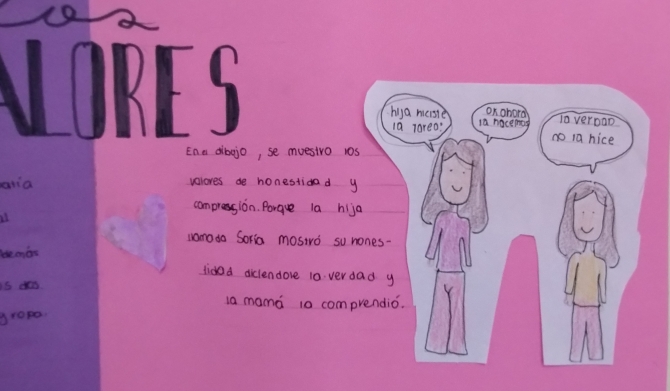 los
ALORES
En el dibujo, se muestro los
valores de honestidad y
compresgión. Porque la hija
llamada Sofía mostró su hones-
tidad diciendole la verdad y
la mamá la comprendió.
hija hiciste
la tarea?
ok ahora
la hacemos
la verdad
no la hice